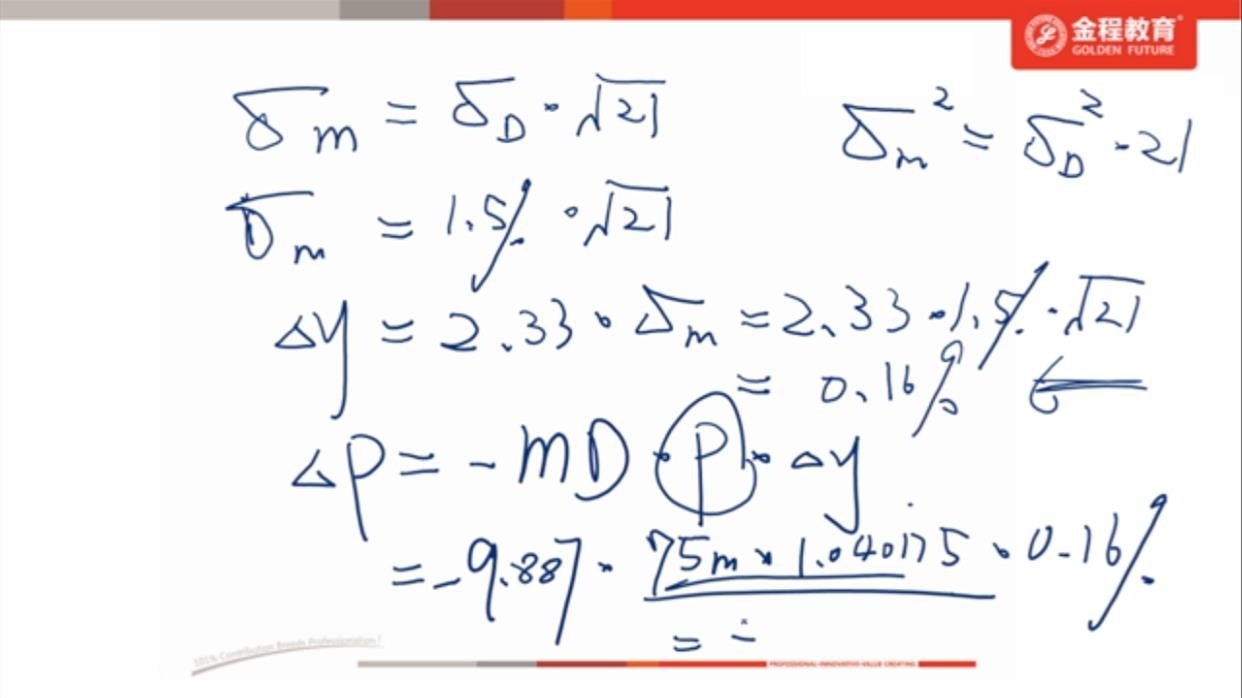 金程教育
GOLDEN FUTURE
σm = σD · √21
σm² = σD² · 21
σm = 1.5% · √21
Δy = 2.33 · σm = 2.33 · 1.5% · √21
= 0.16%
ΔP = - MD · P · Δy
= - 9.887 · 75m × 1.040175 · 0.16%
= -
101% Contribution Breeds Professionalism!
PROFESSIONAL·INNOVATIVE·VALUE CREATING